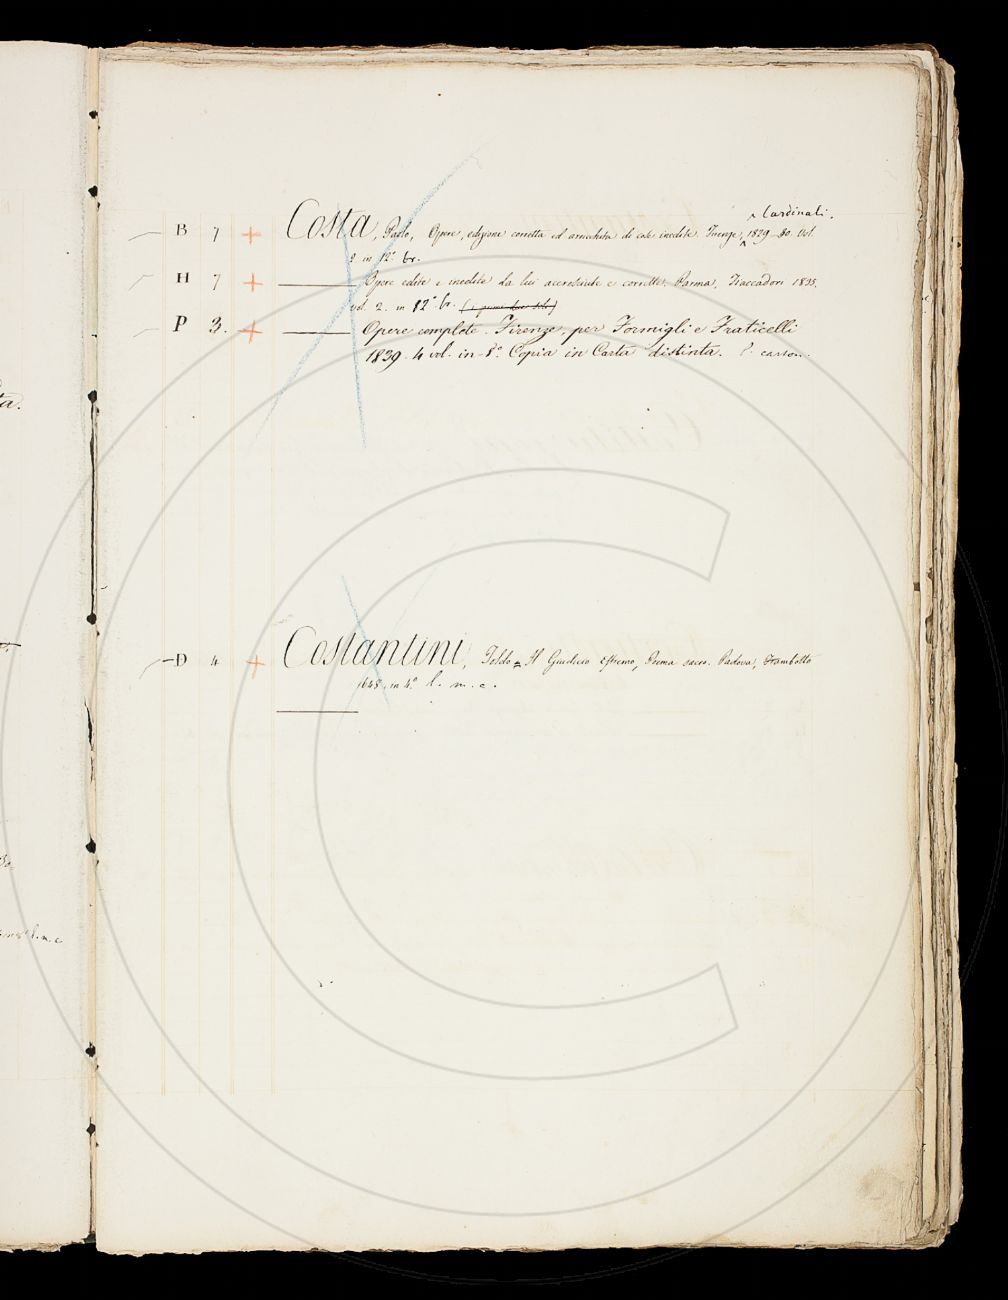 ta.
Cardinali.
B 7 + Costa, Paolo, Opere, edizione corretta ed arricchita di cose inedite. Firenze, 1829-30. Vol.
2 in 12.° br.
H 7 + Opere edite e inedite da lui accresciute e corrette. Parma, Fiaccadori 1835.
vol. 2. in 12° br. (i primi due soli)
P 3. + Opere complete. Firenze, per Formigli e Fraticelli
1839. 4 vol. in-8.° Copia in Carta distinta.
D 4 + Costantini, Toldo = Il Giudicio estremo, Poema sacro. Padova, Frambotto
1648. in 4.° l. m. c.
l. m. c